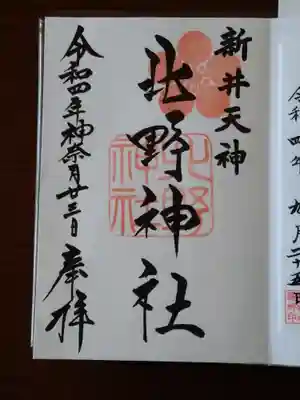 新井天神
北野神社
北野
神社
令和四年神奈月廿三日
奉拝
令和四年九月二十五日